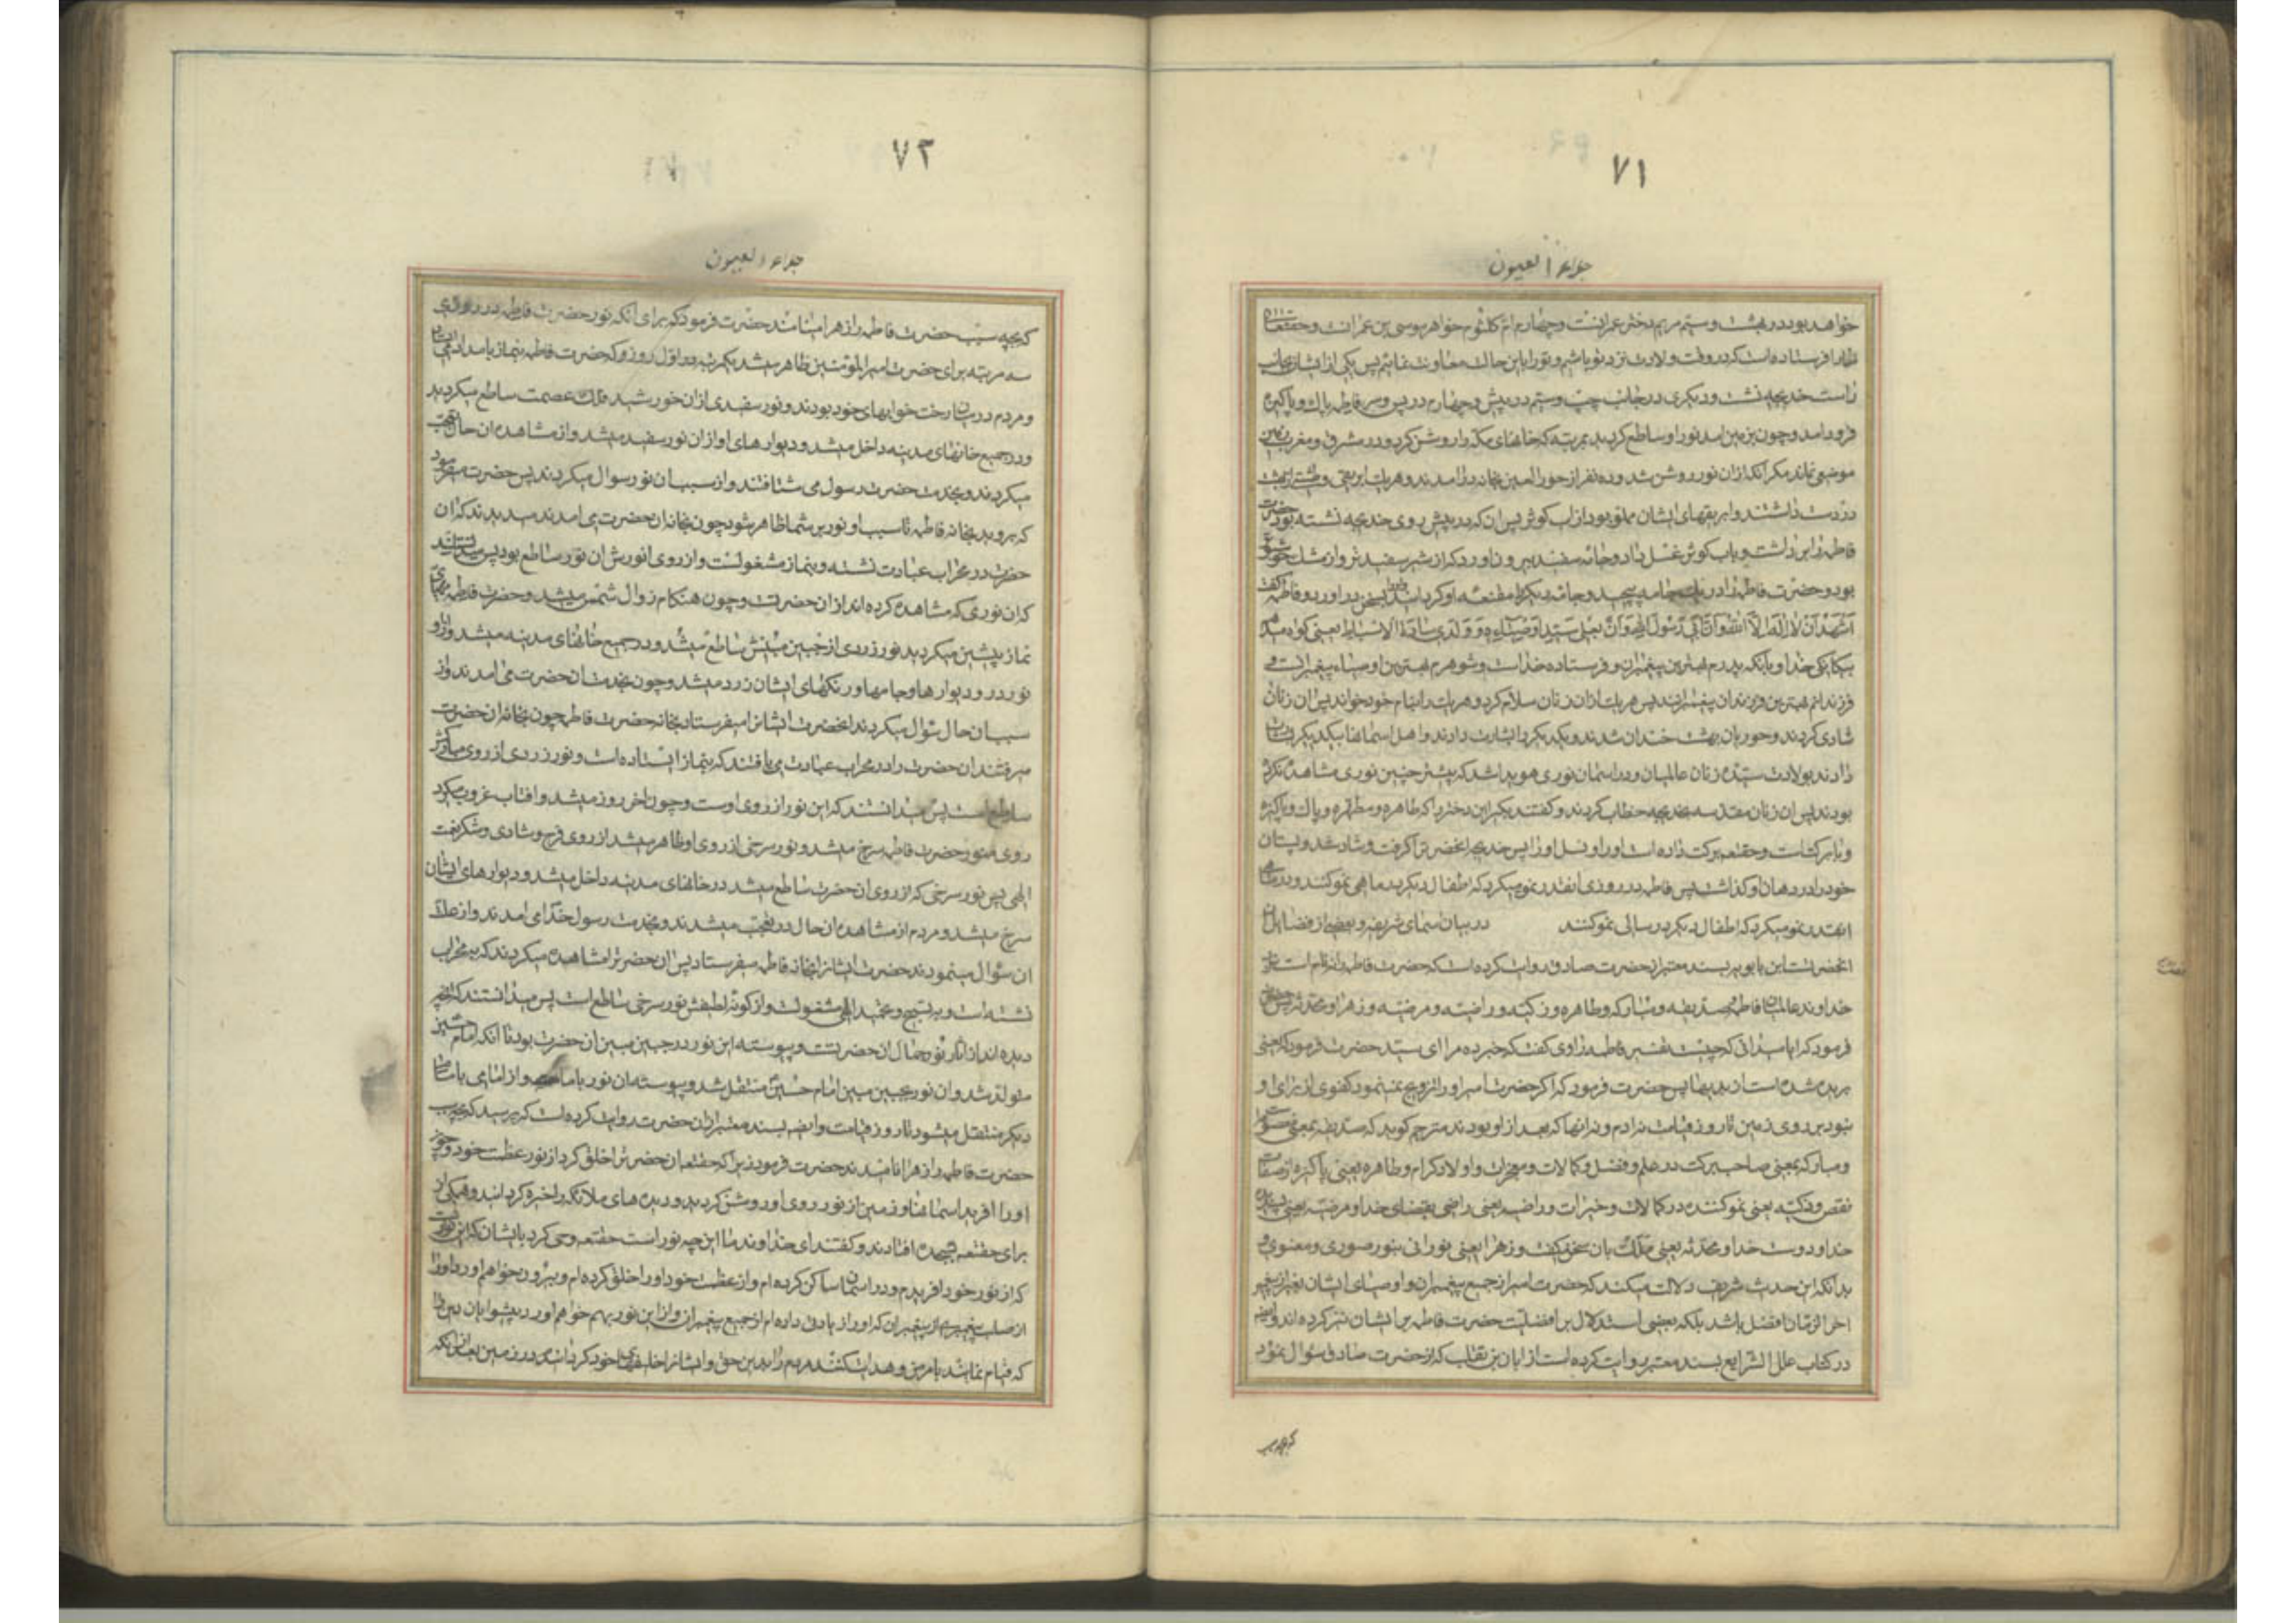 ٧١
جلاء العیون
خواهد بود در بهشت و سیم مریم دختر عمرانست و چهارم ام کلثوم خواهر موسی بن عمرانست و حقتعالی
ما را فرستاده است که در وقت ولادت نزد تو باشیم و تو را باین حال معاونت نمائیم پس یکی از ایشان بجانب
راست خدیجه نشست و دیکری در جانب چپ و سیم در پیش و چهارم در پس سر فاطمه پاک و پاکیزه
فرود امد و چون بزمین امد نور او ساطع کردید بمرتبه که خانهای مکه را روشن کرد و در مشرق و مغرب زمین
موضعی نماند مکر انکه از ان نور روشن شد و ده نفر از حور العین بخانه درامدند و هریک ابریقی و طشتی از بهشت
در دست داشتند و ابریقهای ایشان مملو بود از اب کوثر پس ان که در پیش روی خدیجه نشسته بود حضرت
فاطمه را برداشت و باب کوثر غسل داد و جامه سفیدی بیرون اورد که از شیر سفیدتر و از مشک خوشبوتر
بود و حضرت فاطمه را در یک جامه پیچید و جامه دیکر را مقنعه او کردانید پس بسخن دراورد و فاطمه کفت
اشهد ان لا اله الا الله و ان ابی رسول الله و ان بعلی سید الاوصیاء و ولدی سادة الاسباط یعنی کواهی میدهم
بیکانکی خدا و بانکه پدرم بهترین پیغمبران و فرستاده خداست و شوهرم بهترین اوصیاء پیغمبرانست و
فرزندانم بهترین فرزندان پیغمبرانند پس هریک از ان زنان سلام کرد و هریک را بنام خود خواند پس ان زنان
شادی کردند و حوریان بهشت خندان شدند و یکدیکر را بشارت دادند و اهل اسمانها یکدیکر را بشارت
دادند بولادت سیده زنان عالمیان و در اسمان نوری هویدا شد که پیشتر چنین نوری مشاهده نکرده
بودند پس ان زنان مقدسه بخدیجه خطاب کردند و کفتند بکیر این دختر را که طاهره و مطهره و پاک و پاکیزه
و با برکتست و حقتعالی برکت داده است او را و نسل او را پس خدیجه انحضرترا کرفت و شاد شد و پستان
خود را در دهان او کذاشت پس فاطمه در روزی انقدر نمو میکرد که اطفال دیکر در ماهی نمو کنند و در ماهی
انقدر نمو میکرد که اطفال دیکر در سالی نمو کنند در بیان اسمای شریفه و بعضی از فضایل
انحضرتست ابن بابویه بسند معتبر از حضرت صادق روایت کرده است که حضرت فاطمه را نه نام است نزد
خداوند عالمیان فاطمه و صدیقه و مبارکه و طاهره و زکیه و راضیه و مرضیه و زهرا و محدثه پس حضرت
فرمود که ایا میدانی که چیست تفسیر فاطمه راوی کفت که خبر ده مرا ای سید حضرت فرمود که یعنی
بریده شده است از بدیها پس حضرت فرمود که اکر حضرت امیر او را تزویج نمینمود کفوی از برای او
نبود بر روی زمین تا روز قیامت نه ادم و نه انها که بعد از او بودند مترجم کوید که صدیقه بمعنی معصومه
و مبارکه بمعنی صاحب برکت در علم و فضل و کمالات و معجزات و اولاد کرام و طاهره یعنی پاکیزه از صفات
نقص و زکیه یعنی نمو کننده در کمالات و خیرات و راضیه یعنی راضی بقضای خدا و مرضیه یعنی پسندیده
خدا و دوست خدا و محدثه یعنی ملک با ان سخن کفت و زهرا یعنی نورانی بنور صوری و معنوی و
بدانکه این حدیث شریف دلالت میکند که حضرت امیر از جمیع پیغمبران و اوصیای ایشان بغیر از پیغمبر
اخر الزمان افضل باشد بلکه بعضی استدلال بر افضلیت حضرت فاطمه بر ایشان نیز کرده اند و ایضا
در کتاب علل الشرایع بسند معتبر روایت کرده است از ابان بن تغلب که از حضرت صادق سؤال نمود
که بچه سبب
٧٢
جلاء العیون
که بچه سبب حضرت فاطمه را زهرا مینامند حضرت فرمود که برای انکه نور حضرت فاطمه در روزی
سه مرتبه برای حضرت امیر المؤمنین ظاهر میشد یکمرتبه در اول روز که حضرت فاطمه بنماز بامداد میایستاد
و مردم در میان رخت خوابهای خود بودند و نور سفیدی از ان خورشید فلک عصمت ساطع میکردید
و در جمیع خانهای مدینه داخل میشد و دیوارهای او از ان نور سفید میشد و از مشاهده ان حال تعجب
میکردند و بخدمت حضرت رسول می شتافتند و از سبب ان نور سوال میکردند پس حضرت میفرمود
که بروید بخانه فاطمه تا سبب او نور بر شما ظاهر شود چون بخانه ان حضرت می امدند میدیدند که ان
حضرت در محراب عبادت نشسته و بنماز مشغولست و از روی انورش ان نور ساطع بود پس میدانستند
که ان نوری که مشاهده کرده اند از ان حضرتست و چون هنکام زوال شمس میشد و حضرت فاطمه مهیای
نماز پیشین میکردید نور زردی از جبین مبینش ساطع میشد و در جمیع خانهای مدینه میشد و از او
نور در و دیوارها و جامها و رنکهای ایشان زرد میشد و چون بخدمت ان حضرت می امدند و از
سبب ان حال سؤال میکردند انحضرت ایشانرا میفرستاد بخانه حضرت فاطمه چون بخانه ان حضرت
میرفتند ان حضرت را در محراب عبادت می یافتند که بنماز ایستاده است و نور زردی از روی مبارکش
ساطع است پس میدانستند که این نور از روی اوست و چون اخر روز میشد و افتاب غروب میکرد
روی منور حضرت فاطمه سرخ میشد و نور سرخی از روی او ظاهر میشد از روی فرح و شادی و شکر نعمت
الهی پس نور سرخی که از روی ان حضرت ساطع میشد در خانهای مدینه داخل میشد و دیوارهای ایشان
سرخ میشد و مردم از مشاهده ان حال در تعجب میشدند و بخدمت رسول خدا می امدند و از علت
ان سؤال مینمودند حضرت ایشانرا بخانه فاطمه میفرستاد پس ان حضرترا مشاهده میکردند که بمحراب
نشسته است و به تسبیح و تمجید الهی مشغولست و از کونه لطیفش نور سرخی ساطع است پس میدانستند که انچه
دیده اند از اثار نور جمال ان حضرتست و پیوسته این نور در جبین مبین ان حضرت بود تا انکه امام حسین
متولد شد و ان نور بجبین مبین امام حسین منتقل شد و پیوسته ان نور با ما هست و از امامی بامامی
دیکر منتقل میشود تا روز قیامت و ایضا بسند معتبر از ان حضرت روایت کرده است که پرسید که بچه سبب
حضرت فاطمه را زهرا نامیدند حضرت فرمود زیرا که حقتعالی ان حضرترا خلق کرد از نور عظمت خود و چون
او را افرید اسمانها و زمین از نور روی او روشن کردید و دیده های ملائکه را خیره کردانید و همکی از
برای حقتعالی بسجده افتادند و کفتند ای خداوند ما این چه نور است حقتعالی وحی کرد بایشان که این نوریست
که از نور خود افریدم و در اسمان ساکن کرده ام و از عظمت خود او را خلق کرده ام و بیرون خواهم اورد او را
از صلب پیغمبری از پیغمبران که او را زیادتی داده ام از جمیع پیغمبران و از این نور بهم خواهم اورد پیشوایان دین را
که قیام نمایند بامر من و هدایت کنند مردم را بدین حق و ایشانرا خلیفهای خود کردانم در زمین بعد از انکه